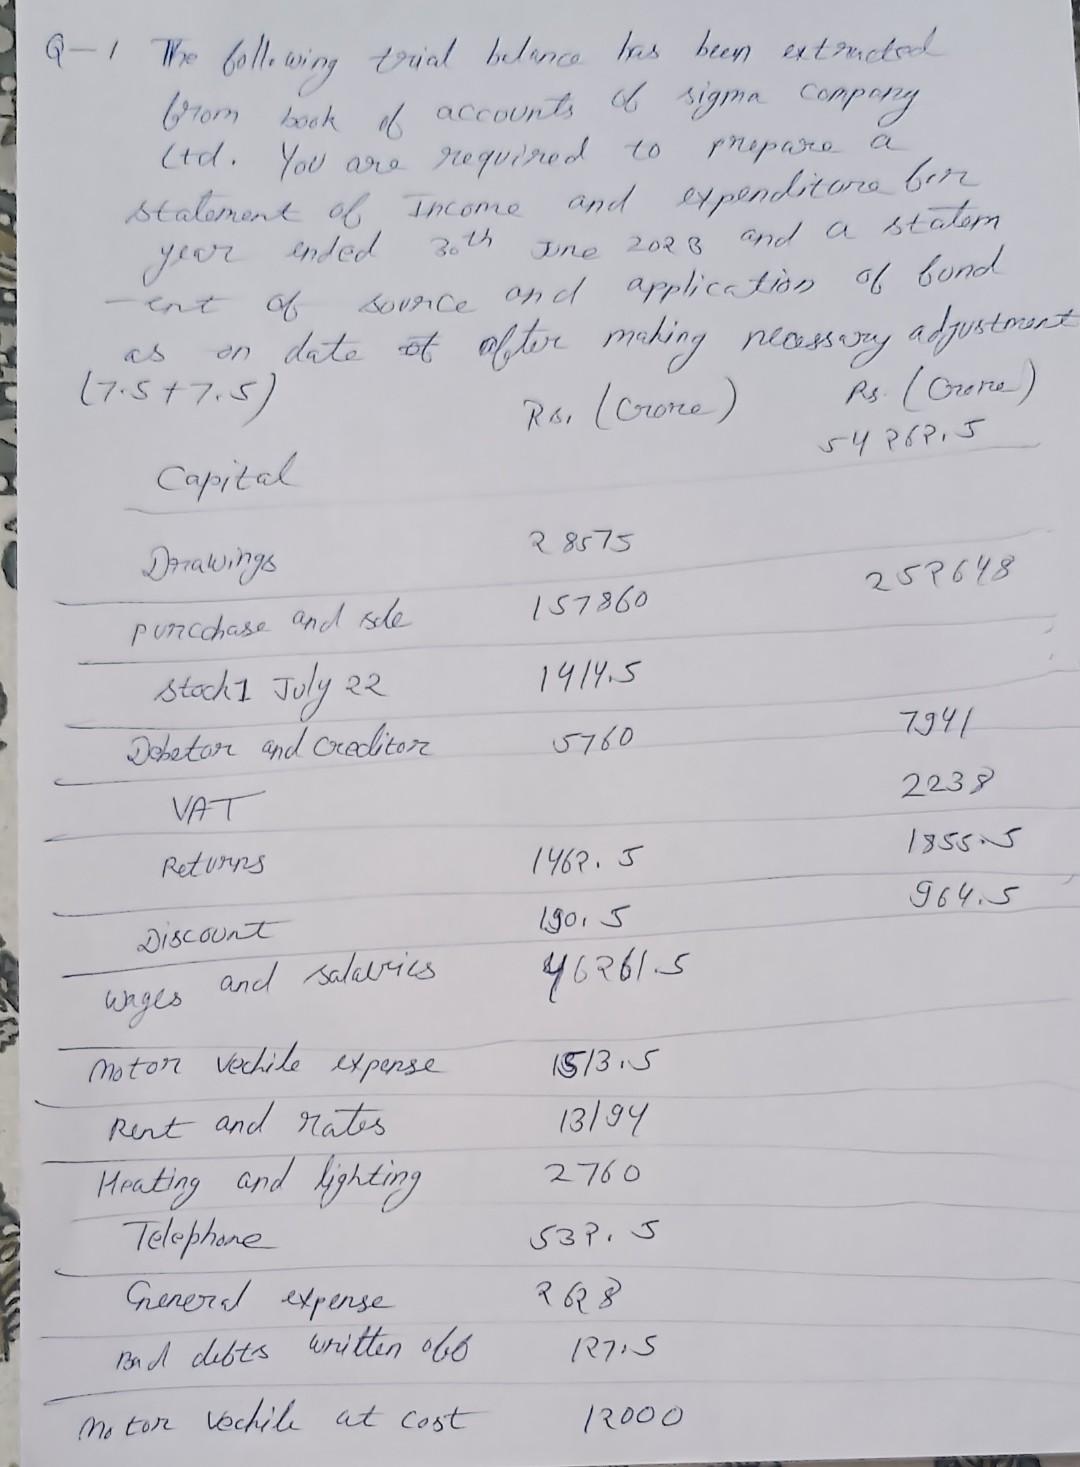 Q-1 The following trial balance has been extracted
from book of accounts of sigma company
Ltd. You are required to prepare a
statement of Income and expenditure for
year ended 30th June 2023 and a statem
-ent of source and application of fund
as on date after making necessary adjustment
(7.5+7.5) Rs. (Crore) Rs. (Crore)
Capital 54262.5
Drawings 28575
purcchase and sale 157860 252648
stock1 July 22 1414.5
Debetor and creditor 5760 7941
VAT 2238
Returns 1462.5 1855.5
Discount 190.5 964.5
wages and salabries 46261.5
Motor vechile expense 1513.5
Rent and rates 13194
Heating and lighting 2760
Telephone 532.5
General expense 2628
Bad debts written off 127.5
Motor vechile at cost 12000